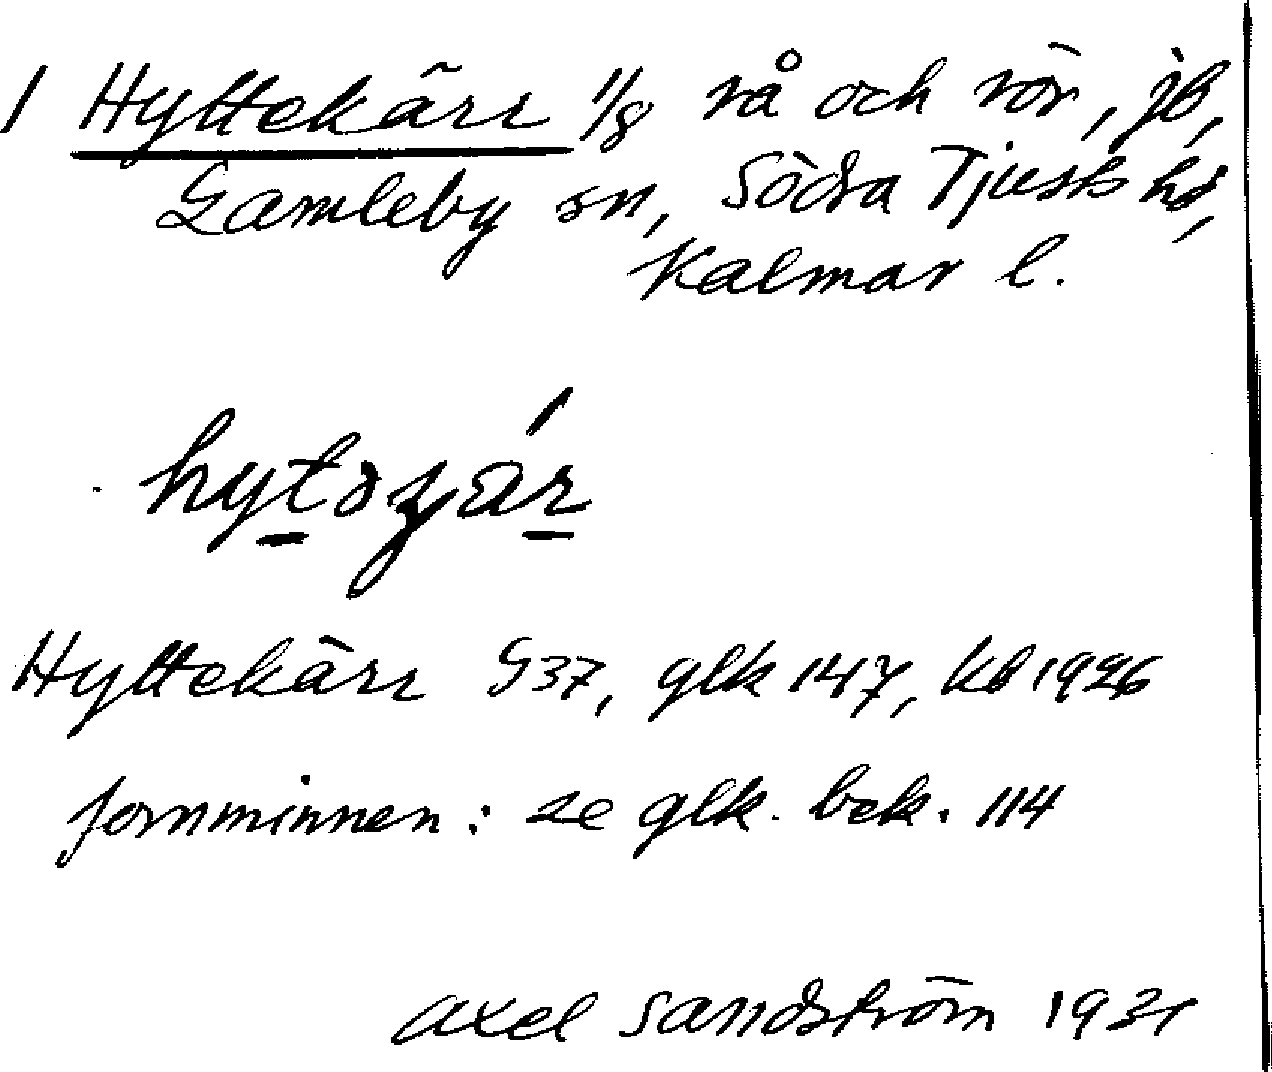 1 Hyttekärr 1/8 rå och rör, jb,
Gamleby sn, Södra Tjusts hd,
Kalmar l.
Hyttekärr G37, glk 147, kb 1926
fornminnen: se glk. bek. 114
Axel Sandström 1931